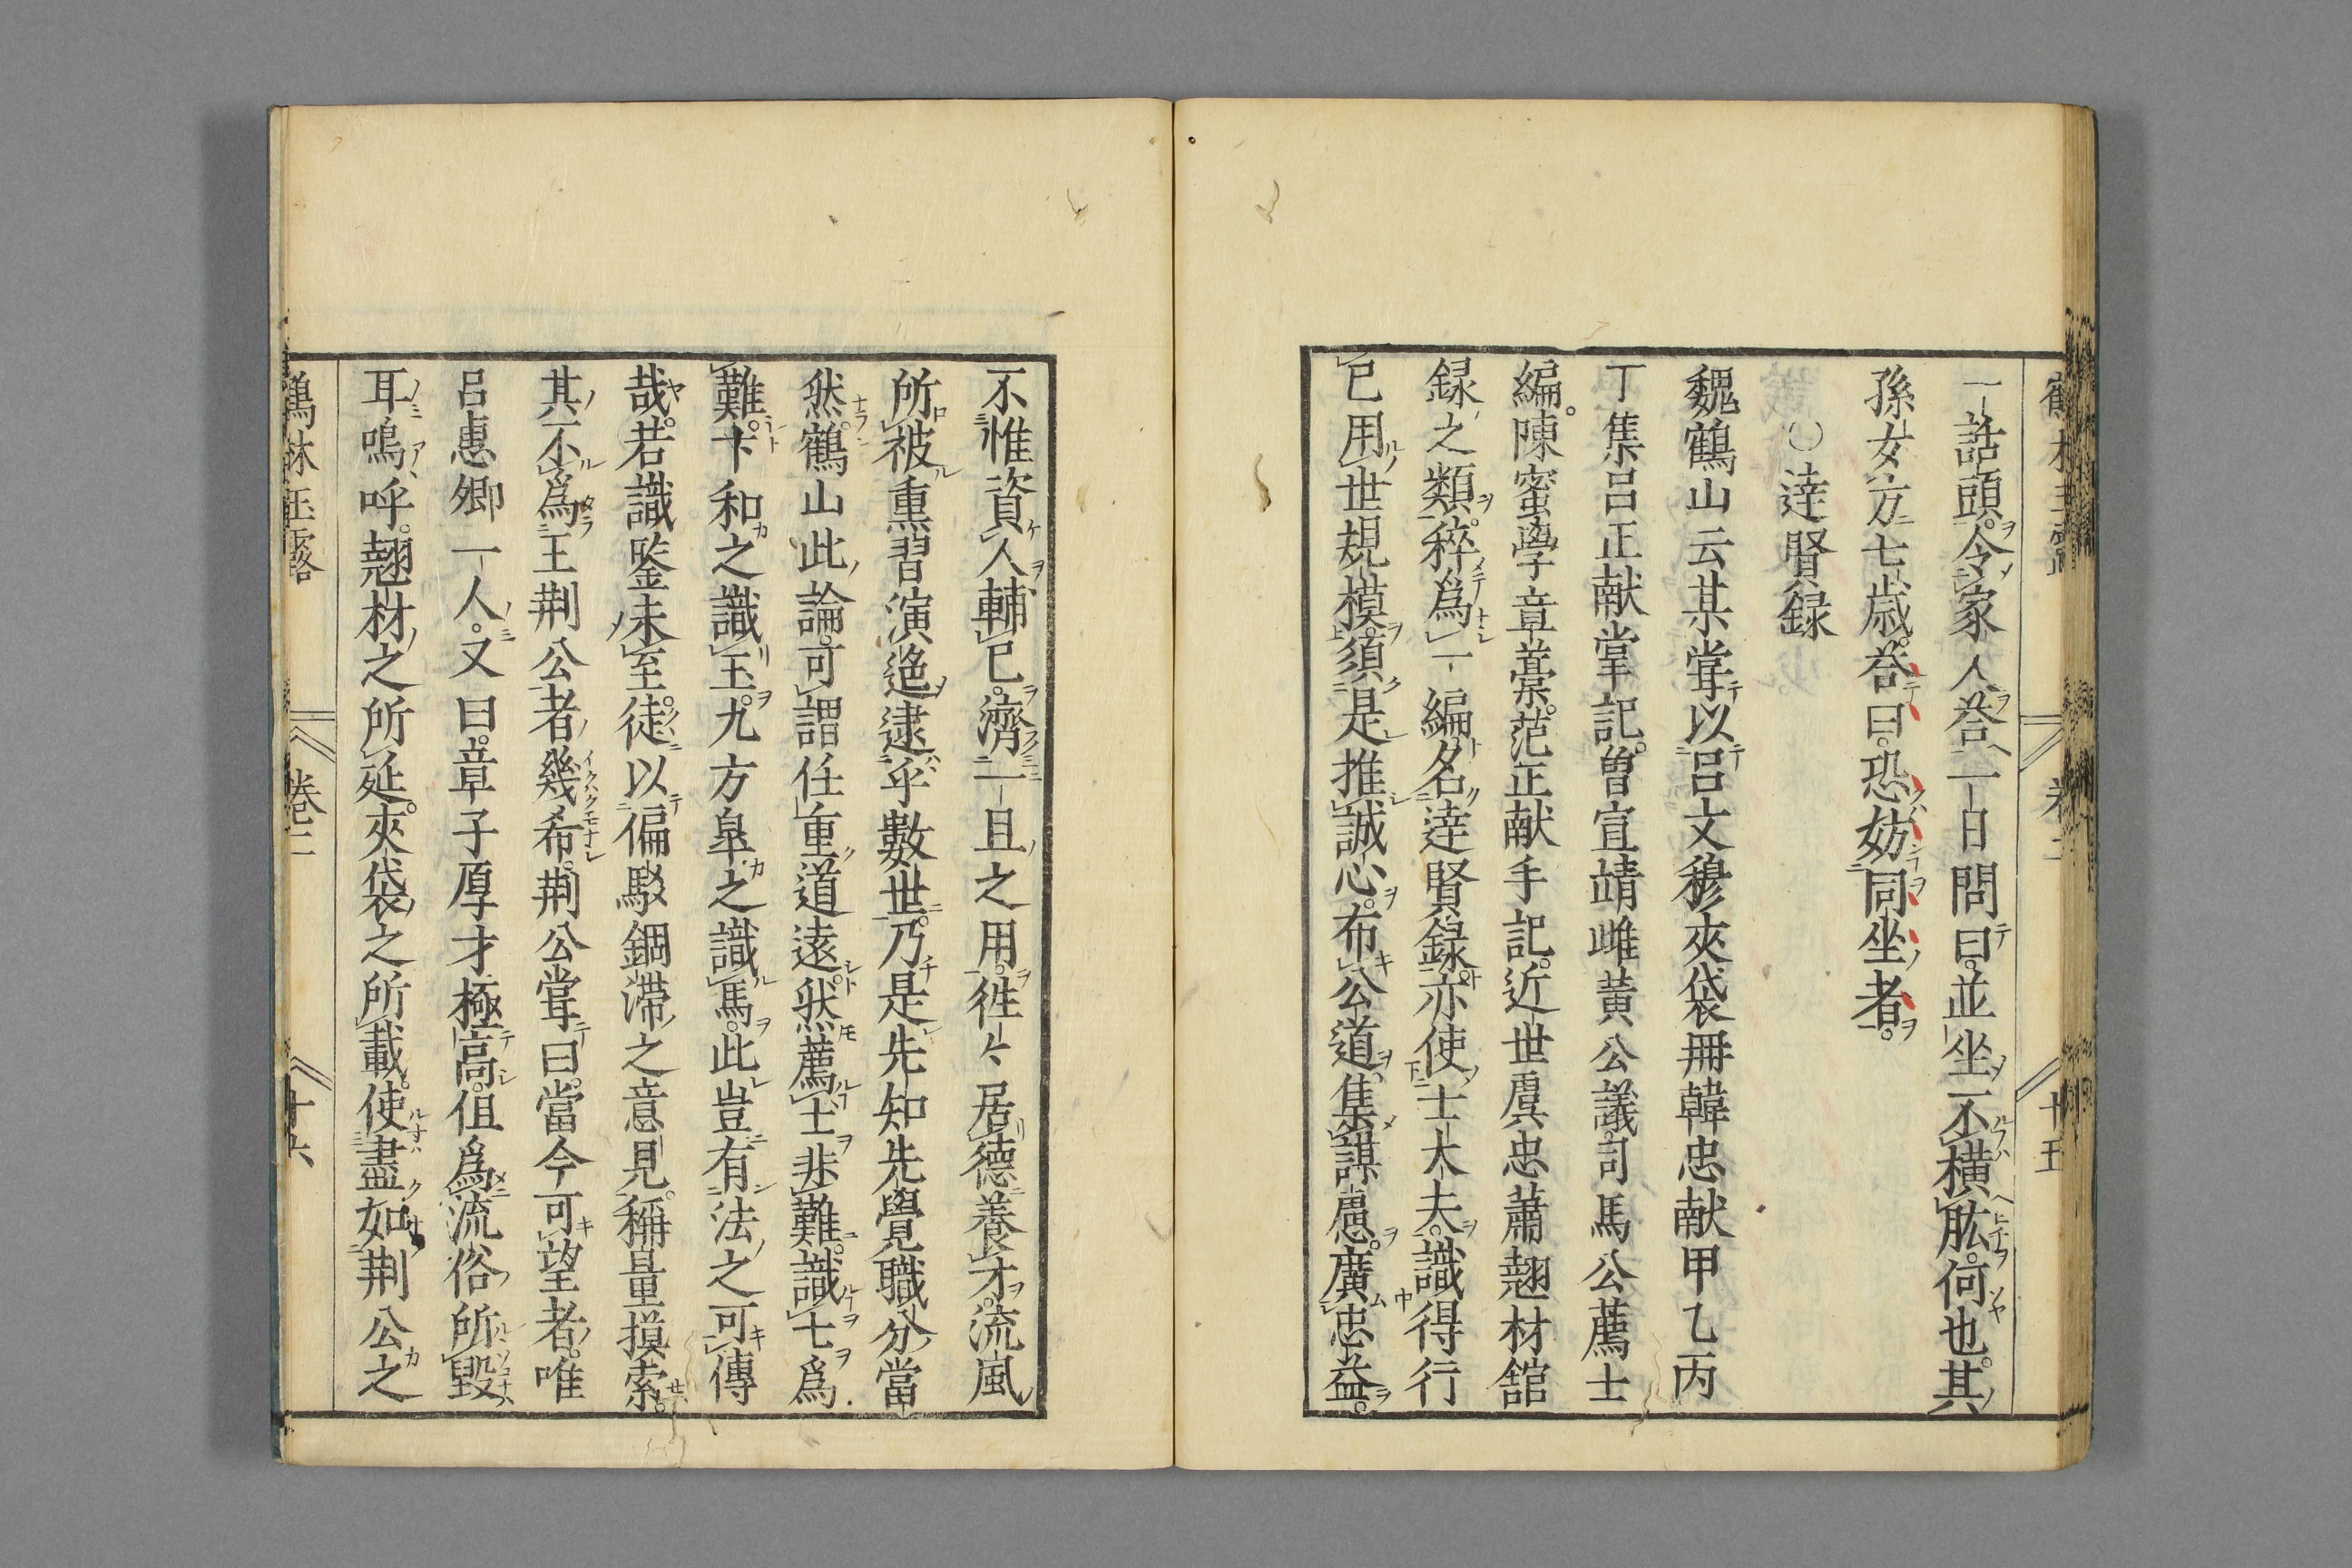 一話頭令家人荅一日問曰並坐不横肱何也其
孫女方七歳荅曰恐妨同坐者
○達賢録
魏鶴山云某甞以呂文穆夾袋冊韓忠献甲乙丙
丁集呂正献掌記曽宣靖雌黄公議司馬公薦士
編陳蜜學章藁范正献手記近世虞忠蕭翹材舘
録之類稡爲一編名達賢録亦使士大夫識得行
已用世規模須是推誠心布公道集謀慮廣忠益
不惟資人輔已濟一旦之用徃々居德養才流風
所被熏習演迤逮乎數世乃是先知先覺職分當
然鶴山此論可謂任重道遠然薦士非難識士爲
難卞和之識玉九方臯之識馬此豈有法之可傳
哉若識鍳未至徒以偏駁錮滯之意見稱量摸索
其不爲王荆公者幾希荆公甞曰當今可望者唯
呂惠卿一人又曰章子厚才極高伹爲流俗所毀
耳嗚呼翹材之所延夾袋之所載使盡如荆公之
鶴林玉露　卷二　十六